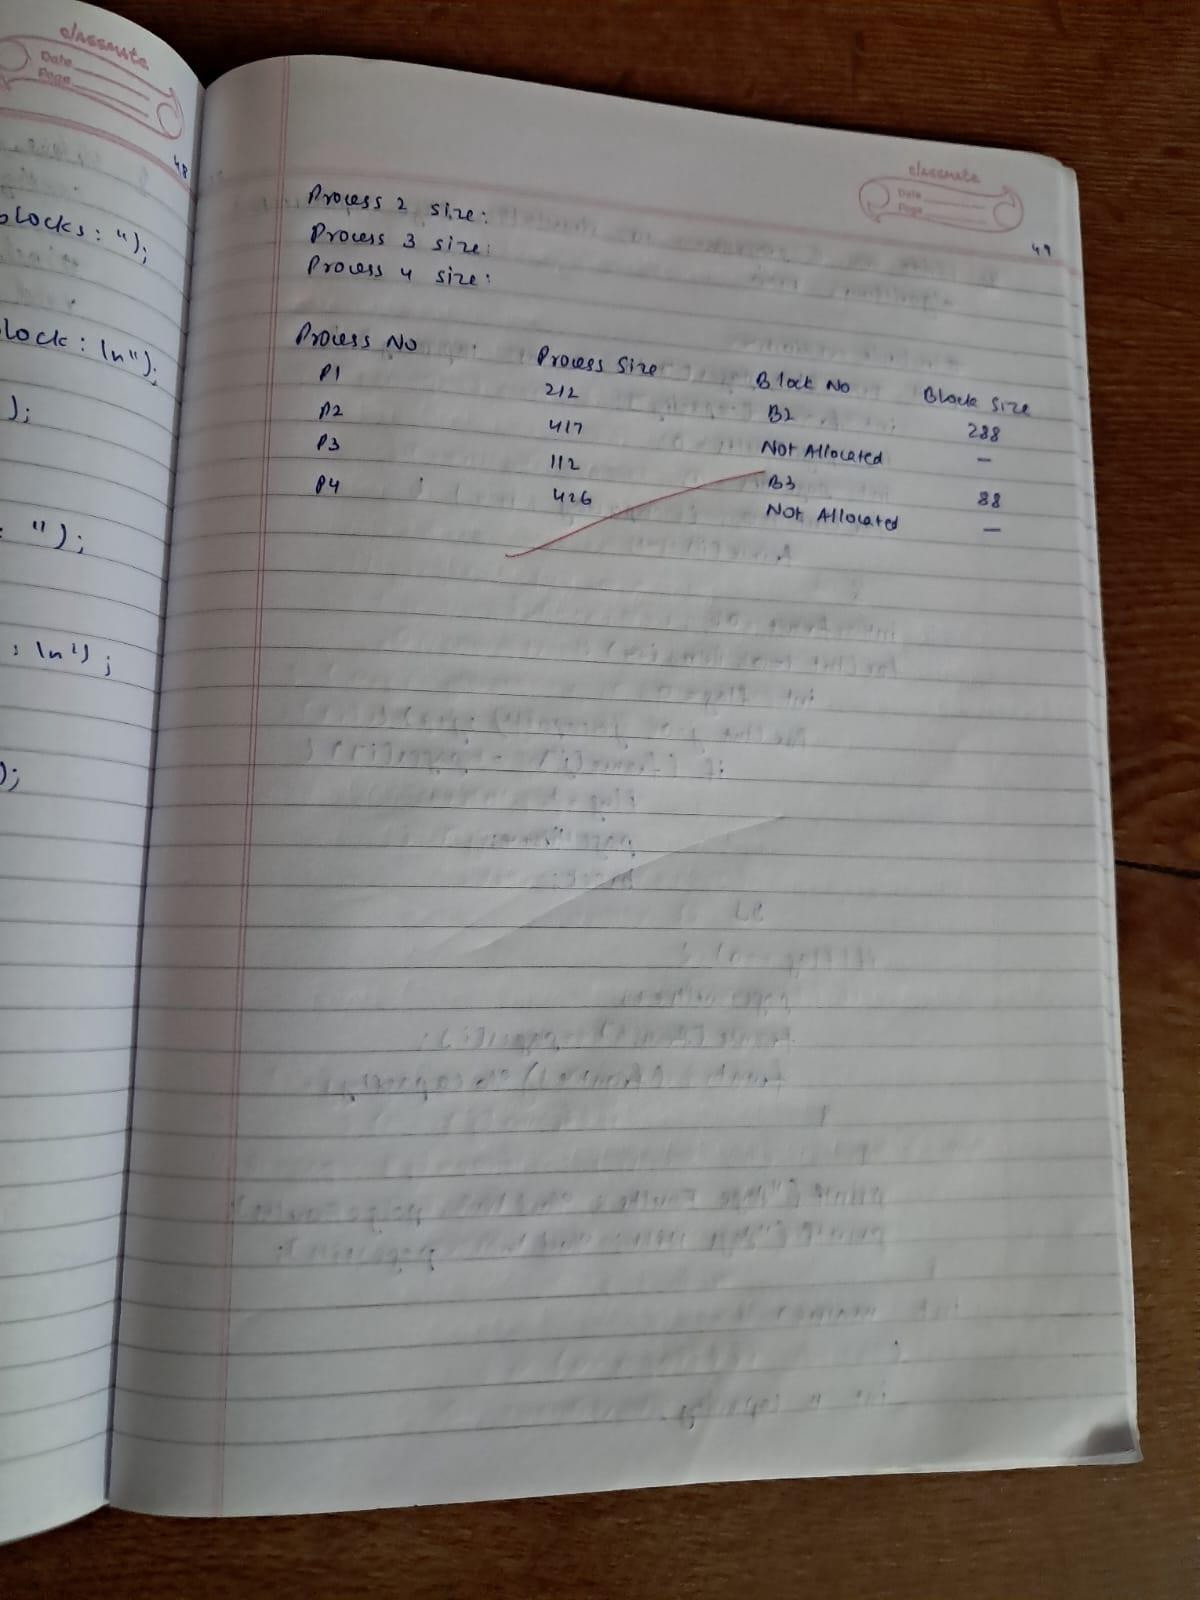 classmate
Date
Page
48
blocks: ");
lock: \n");
);
");
: \n");
);
classmate
Date
Page
49
Process 2 size:
Process 3 size:
Process 4 size:
Process No Process Size Block No Block Size
P1 212 B2 288
P2 417 Not Allocated —
P3 112 B3 88
P4 426 Not Allocated —